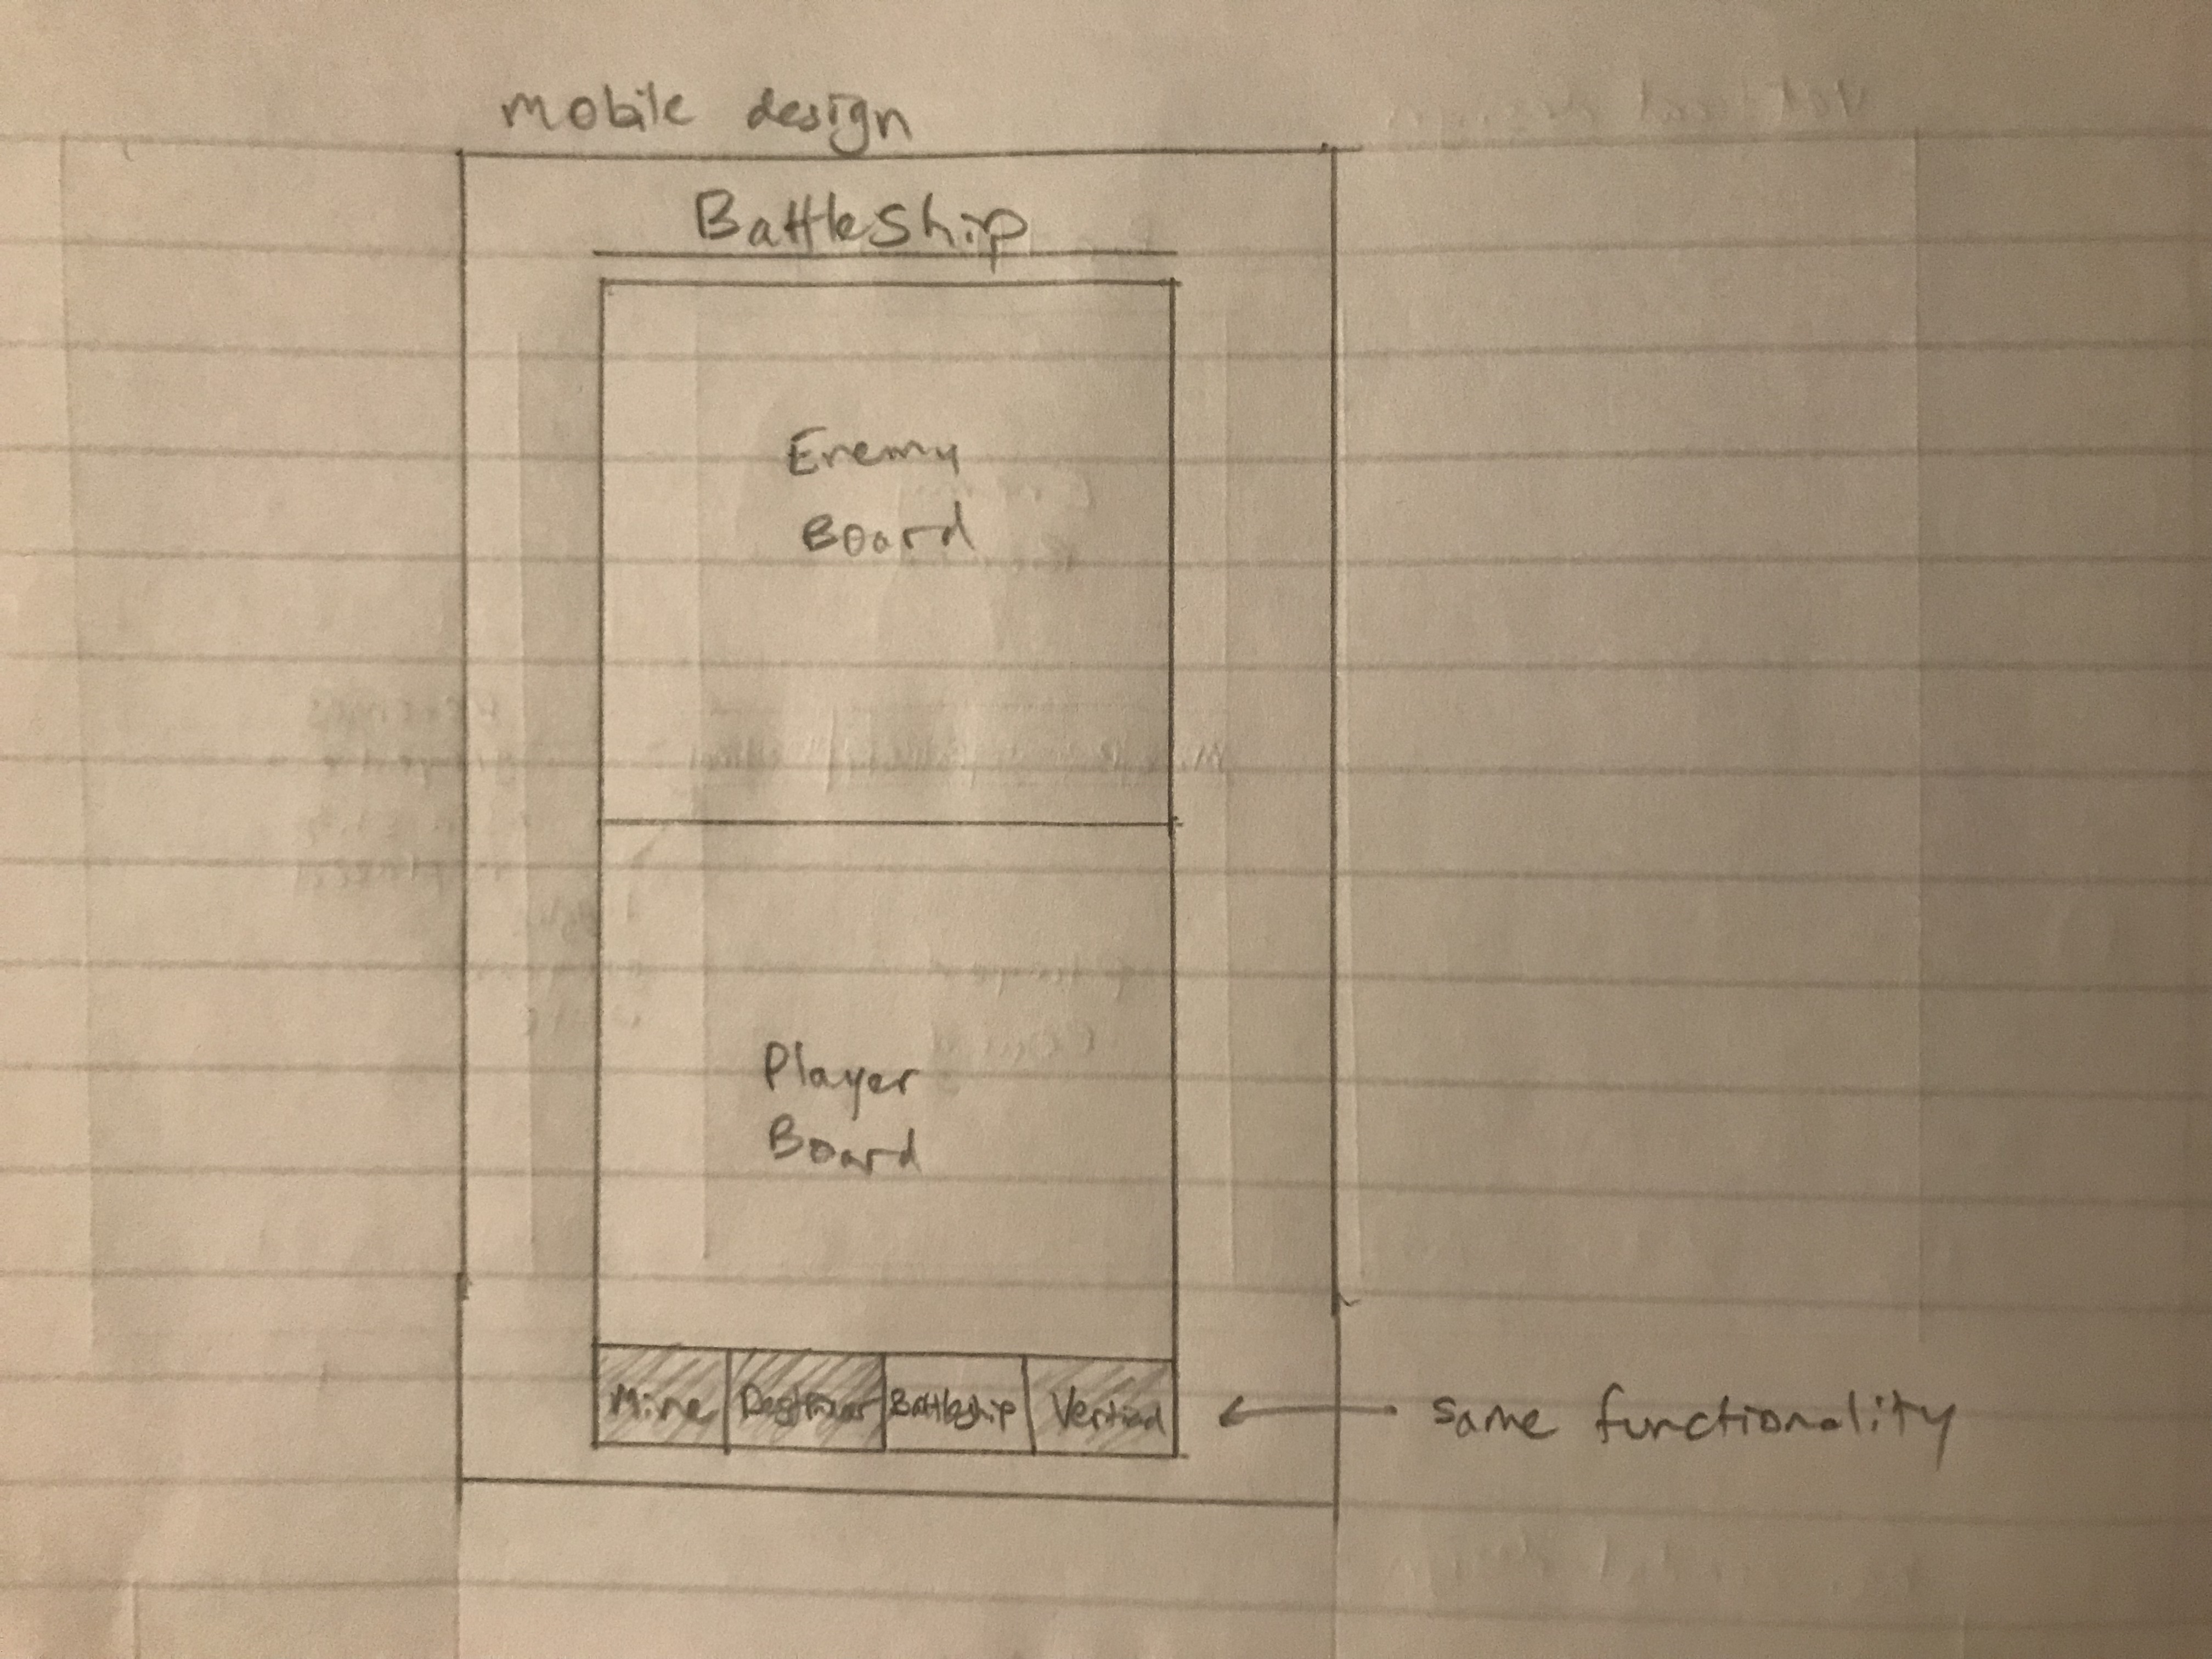 mobile design
BattleShip
Enemy
Board
Player
Board
Mine Destroyer Battleship Vertical
same functionality